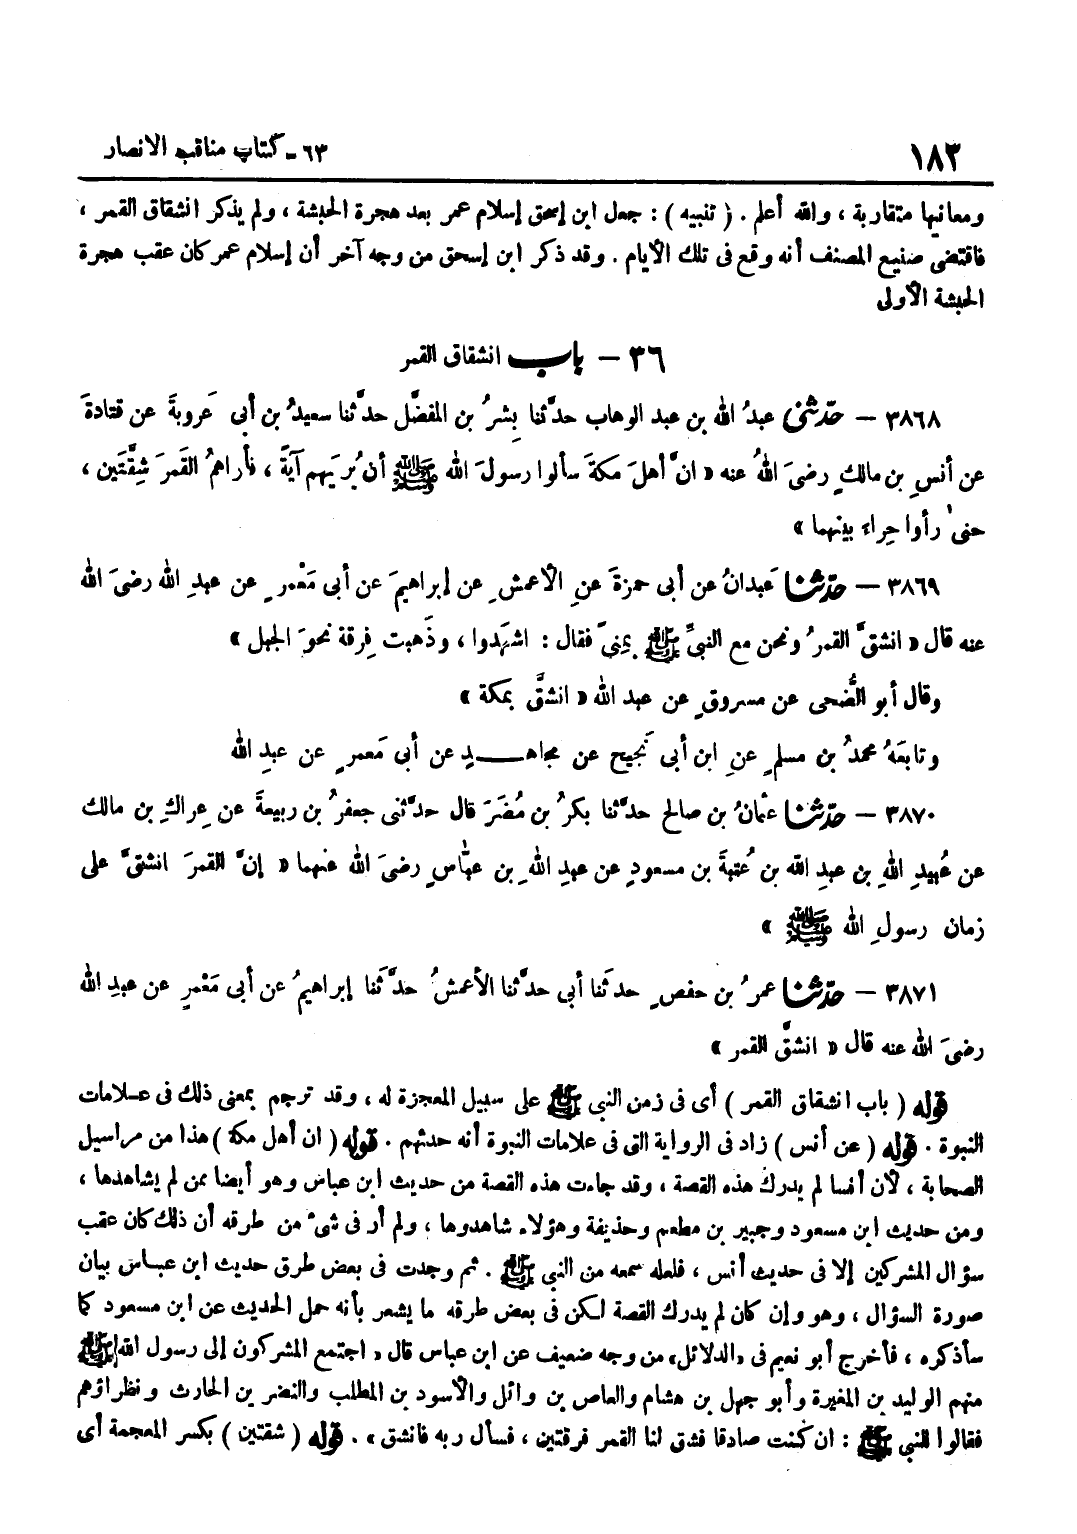 ١٨٢ ٦٣ - كتاب مناقب الانصار
ومعانيها متقاربة ، والله أعلم . ( تنبيه ) : جعل ابن إسحق إسلام عمر بعد هجرة الحبشة ، ولم يذكر انشقاق القمر ،
فاقتضى صنيع المصنف أنه وقع فى تلك الأيام . وقد ذكر ابن إسحق من وجه آخر أن إسلام عمر كان عقب هجرة
الحبشة الأولى
٣٦ - باب انشقاق القمر
٣٨٦٨ - حدّثنى عبدُ الله بن عبد الوهاب حدَّثنا بِشرُ بن المفضَّل حدَّثنا سعيدُ بن أبى عَروبةَ عن قتادةَ
عن أنسِ بن مالكٍ رضىَ اللهُ عنه « انَّ أهلَ مكةَ سألوا رسولَ الله ﷺ أن يُريَهم آيةً ، فأراهمُ القمرَ شِقَّتَين ،
حتىٰ رأوا حِراء بينهما »
٣٨٦٩ - حدّثنا عَبدانُ عن أبى حمزةَ عنِ الأعمشِ عن إبراهيمَ عن أبى مَعْمرٍ عن عبدِ الله رضىَ الله
عنه قال « انشقَّ القمرُ ونحن مع النبىِّ ﷺ بمِنىً فقال : اشهَدوا ، وذَهبت فِرقة نحوَ الجبل »
وقال أبو الضُّحى عن مسروقٍ عن عبد الله « انشقَّ بمكة »
وتابعَهُ محمدُ بن مسلمٍ عنِ ابن أبى نَجيح عن مجاهـــدٍ عن أبى مَعمرٍ عن عبدِ الله
٣٨٧٠ - حدّثنا عثمانُ بن صالح حدَّثنا بكرُ بن مُضَرَ قال حدَّثنى جعفرُ بن ربيعةَ عن عِراكِ بن مالك
عن عُبيدِ اللهِ بن عبدِ الله بن عُتبةَ بن مسعودٍ عن عبدِ اللهِ بن عبّاسٍ رضىَ الله عنهما « إنَّ القمرَ انشقَّ على
زمان رسولِ الله ﷺ »
٣٨٧١ - حدّثنا عمرُ بن حفصٍ حدَّثنا أبى حدَّثنا الأعمشُ حدَّثنا إبراهيمُ عن أبى مَعْمرٍ عن عبدِ الله
رضىَ الله عنه قال « انشقَّ القمر »
قوله ( باب انشقاق القمر ) أى فى زمن النبى ﷺ على سبيل المعجزة له ، وقد ترجم بمعنى ذلك فى عـلامات
النبوة . قوله ( عن أنس ) زاد فى الرواية التى فى علامات النبوة أنه حدثهم . قوله ( ان أهل مكة ) هذا من مراسيل
الصحابة ، لأن أنسا لم يدرك هذه القصة ، وقد جاءت هذه القصة من حديث ابن عباس وهو أيضا ممن لم يشاهدها ،
ومن حديث ابن مسعود وجبير بن مطعم وحذيفة وهؤلاء شاهدوها ، ولم أر فى شىء من طرقه أن ذلك كان عقب
سؤال المشركين إلا فى حديث أنس ، فلعله سمعه من النبى ﷺ . ثم وجدت فى بعض طرق حديث ابن عبـاس بيان
صورة السؤال ، وهو وإن كان لم يدرك القصة لكن فى بعض طرقه ما يشعر بأنه حمل الحديث عن ابن مسعود كما
سأذكره ، فأخرج أبو نعيم فى «الدلائل» من وجه ضعيف عن ابن عباس قال « اجتمع المشركون إلى رسول الله ﷺ
منهم الوليد بن المغيرة وأبو جهل بن هشام والعاص بن وائل والأسود بن المطلب والنضر بن الحارث ونظراؤهم
فقالوا للنبى ﷺ : ان كنت صادقا فشق لنا القمر فرقتين ، فسأل ربه فانشق » . قوله ( شقتين ) بكسر المعجمة أى